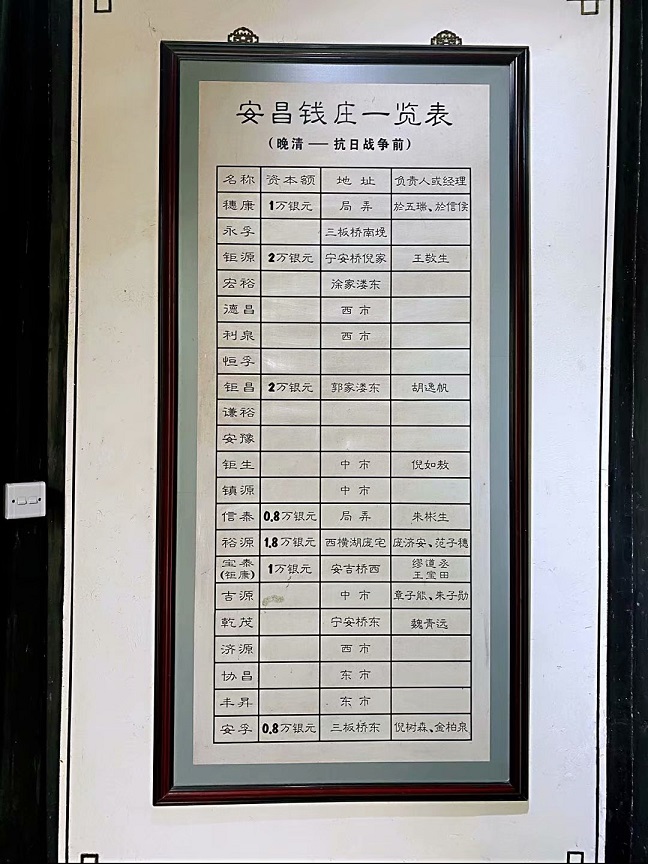 安昌钱庄一览表
(晚清 — 抗日战争前)
名称 资本额 地址 负责人或经理
穗康 1万银元 局弄 於五瑞、於信侯
永孚 三板桥南堍
钜源 2万银元 宁安桥倪家 王敬生
宏裕 涂家溇东
德昌 西市
利泉 西市
恒孚
钜昌 2万银元 郭家溇东 胡逸帆
谦裕
安豫
钜生 中市 倪如敖
镇源 中市
信泰 0.8万银元 局弄 朱彬生
裕源 1.8万银元 西横湖庞宅 庞济安、范子穗
宝泰(钜康) 1万银元 安吉桥西 缪道丞 王宝田
吉源 中市 章子能、朱子勋
乾茂 宁安桥东 魏青远
济源 西市
协昌 东市
丰昇 东市
安孚 0.8万银元 三板桥东 倪树森、金柏泉